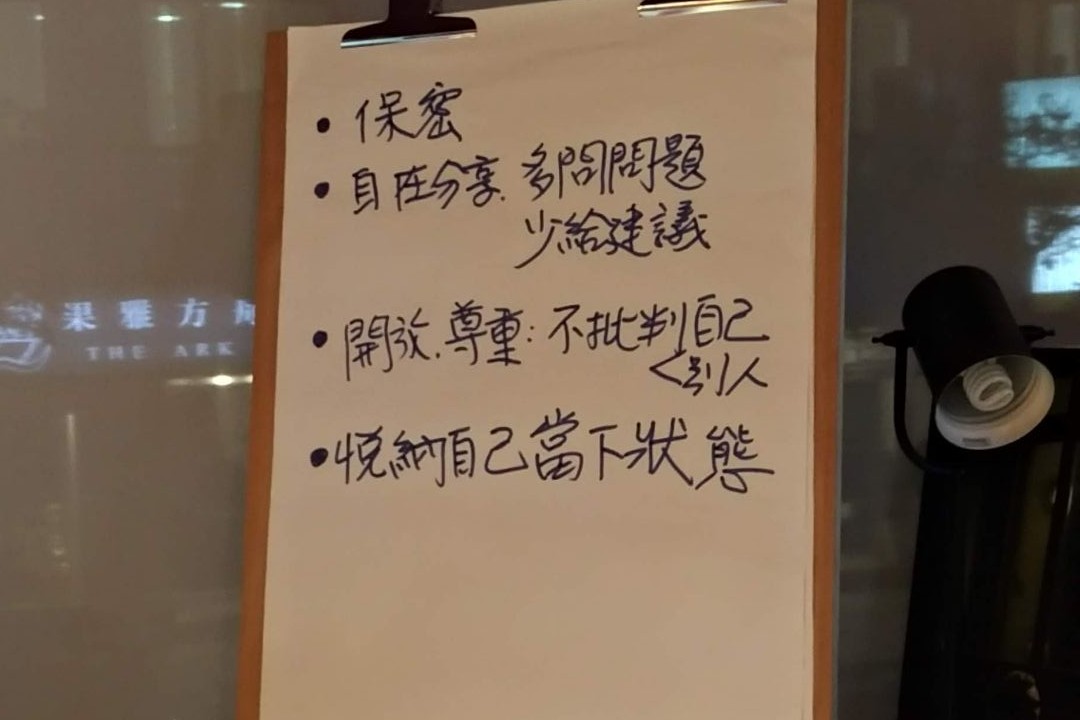 • 保密
• 自在分享. 多問問題
少給建議
• 開放. 尊重: 不批判自己
<別人
• 悅納自己當下狀態
果雅方舟
THE ARK